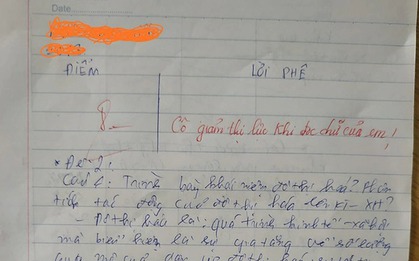 Date
ĐIỂM LỜI PHÊ
8
Cô giảm thị lực khi đọc chữ của em!
* Đề 2:
Câu 1: Trình bày khái niệm đô thị hoá? Phân
tích tác động của đô thị hóa đến KT - XH?
- Đô thị hóa là: quá trình kinh tế - xã hội
mà biểu hiện là sự gia tăng về số lượng